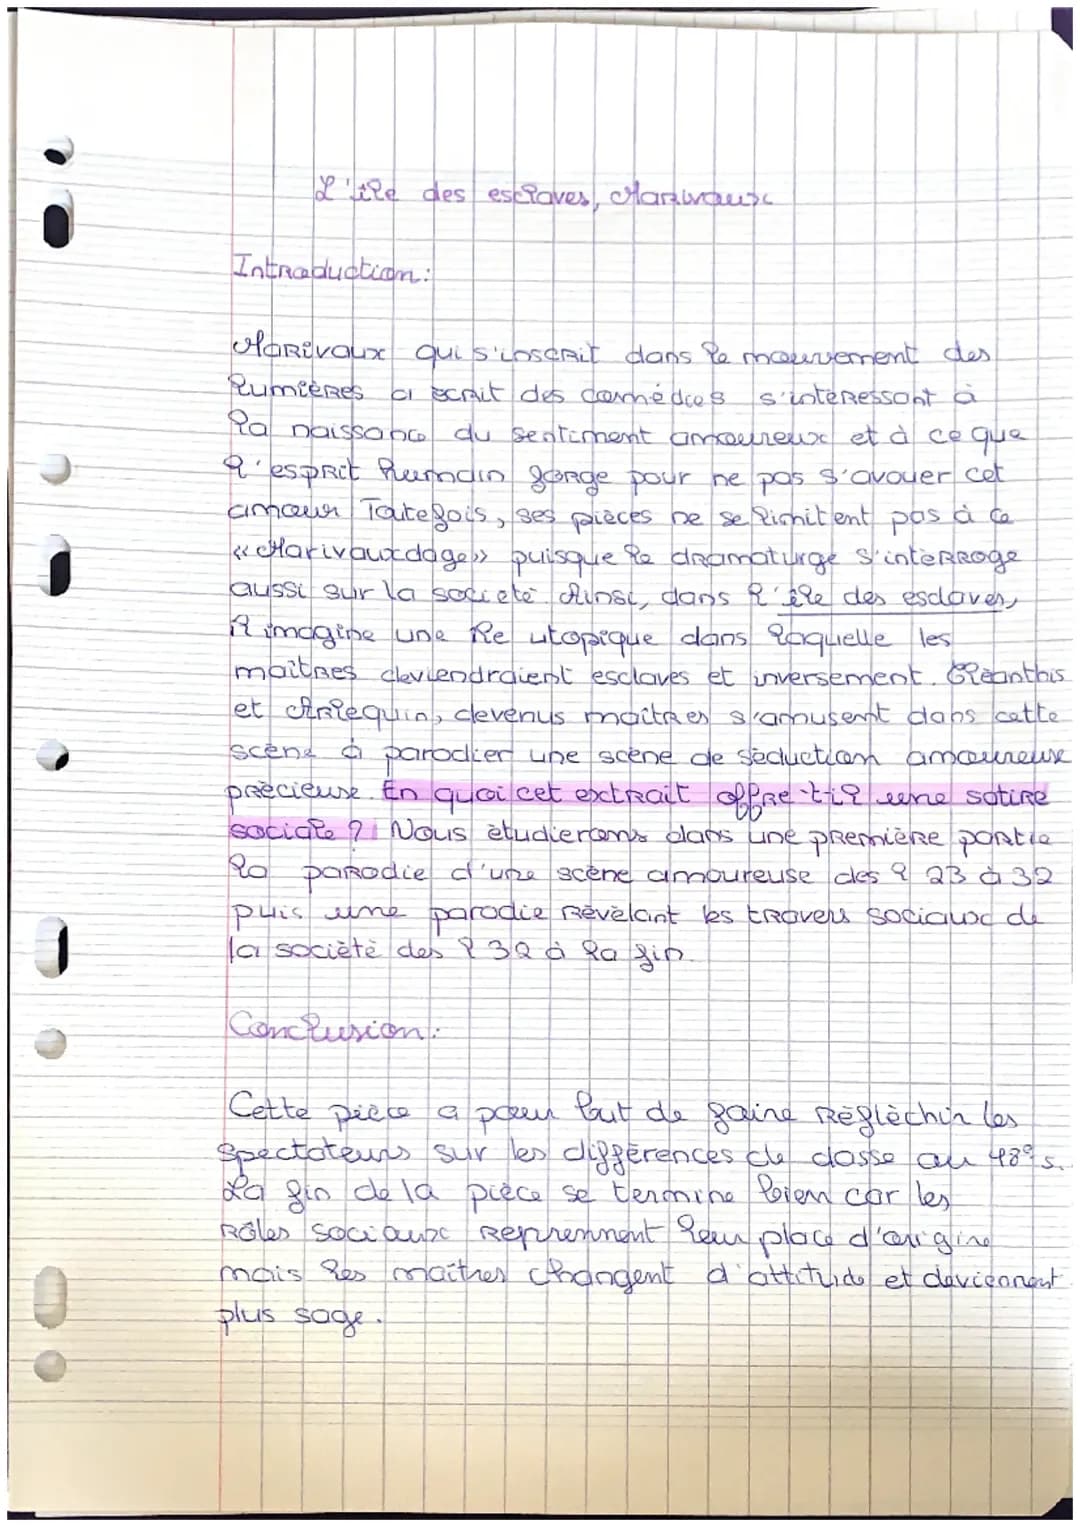 L'île des esclaves, Marivaux
Introduction:
Marivaux qui s'inscrit dans le mouvement des
lumières a écrit des comédies s'intéressant à
la naissance du sentiment amoureux et à ce que
l'esprit humain forge pour ne pas s'avouer cet
amour Toutefois, ses pièces ne se limitent pas à ce
<<Marivauxdage>> puisque le dramaturge s'interroge
aussi sur la société. Ainsi, dans l'île des esclaves,
il imagine une île utopique dans laquelle les
maîtres deviendraient esclaves et inversement. Cléanthis
et Arlequin, devenus maîtres s'amusent dans cette
scène à parodier une scène de séduction amoureuse
précieuse. En quoi cet extrait offre-t-il une satire
sociale ? Nous étudierons dans une première partie
la parodie d'une scène amoureuse des l 23 à 32
puis une parodie révélant les travers sociaux de
la société des l 32 à la fin.
Conclusion:
Cette pièce a pour but de faire réfléchir les
spectateurs sur les différences de classe au 18e s.
La fin de la pièce se termine bien car les
rôles sociaux reprennent leur place d'origine
mais les maîtres changent d'attitude et deviennent
plus sage.